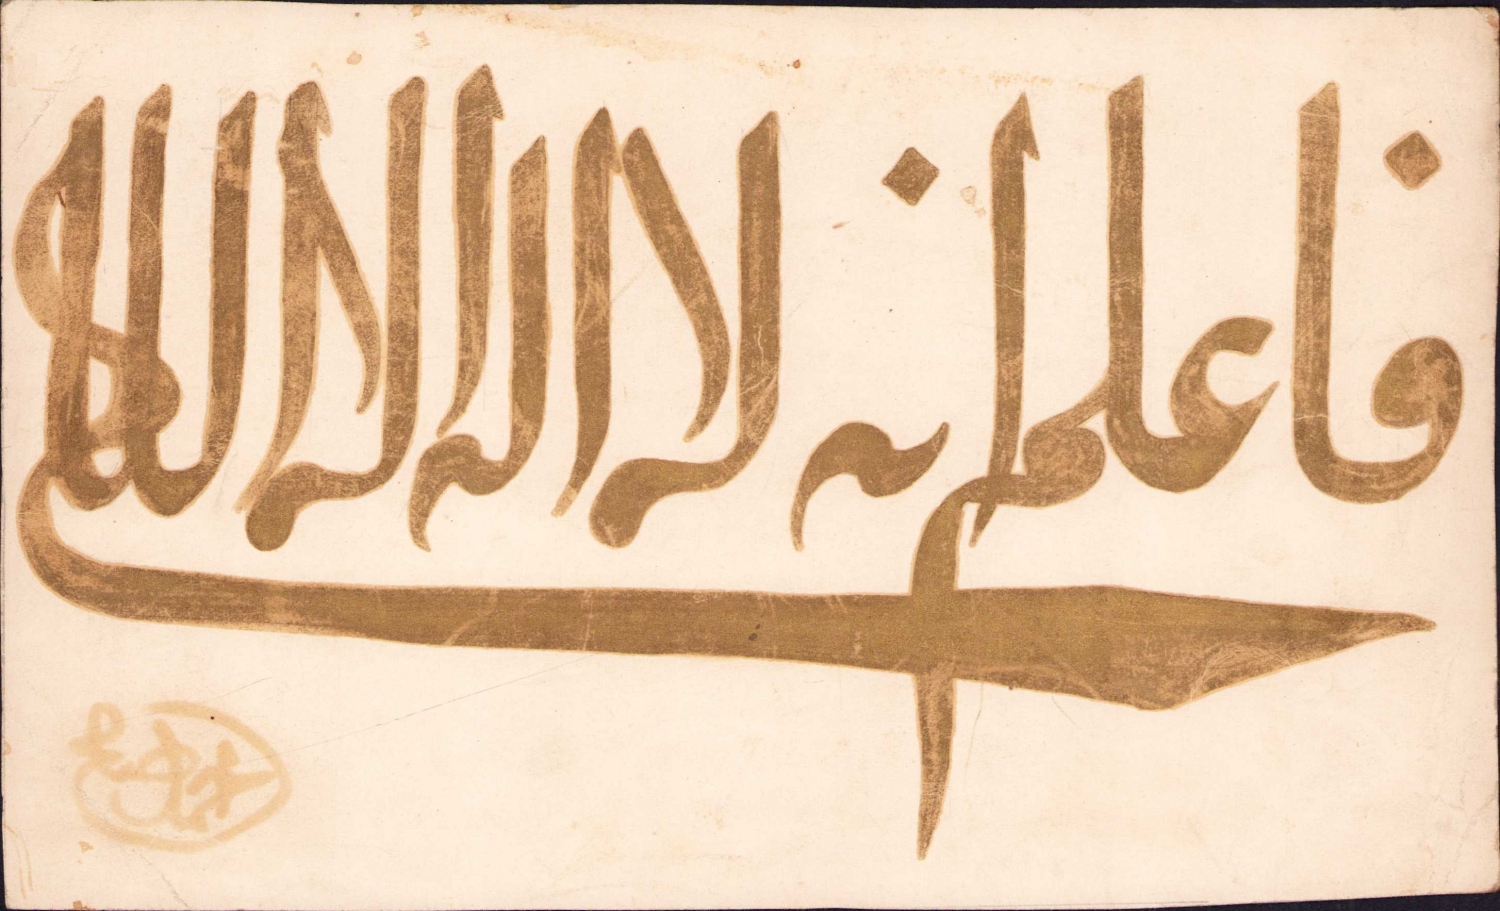 فاعلم انه لا اله الا الله